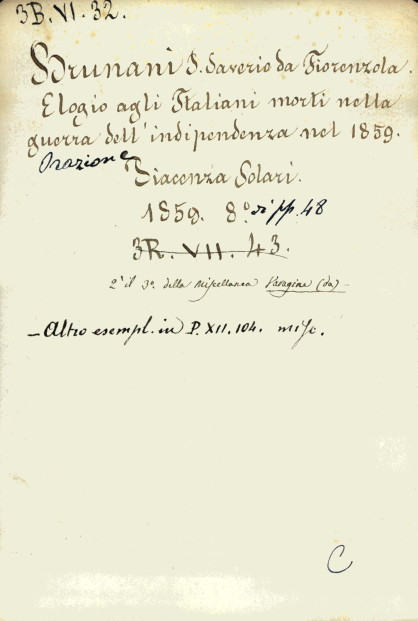 3B. VI. 32.
Brunani P. Saverio da Fiorenzola.
Elogio agli Italiani morti nella
guerra dell'indipendenza nel 1859.
Orazione
Piacenza Solari.
1859. 8° di pp. 48
3R. VII. 43.
2° il 3° della Miscellanea Varagine (da)
- Altro esempl. in P. XII. 104. misc.
C